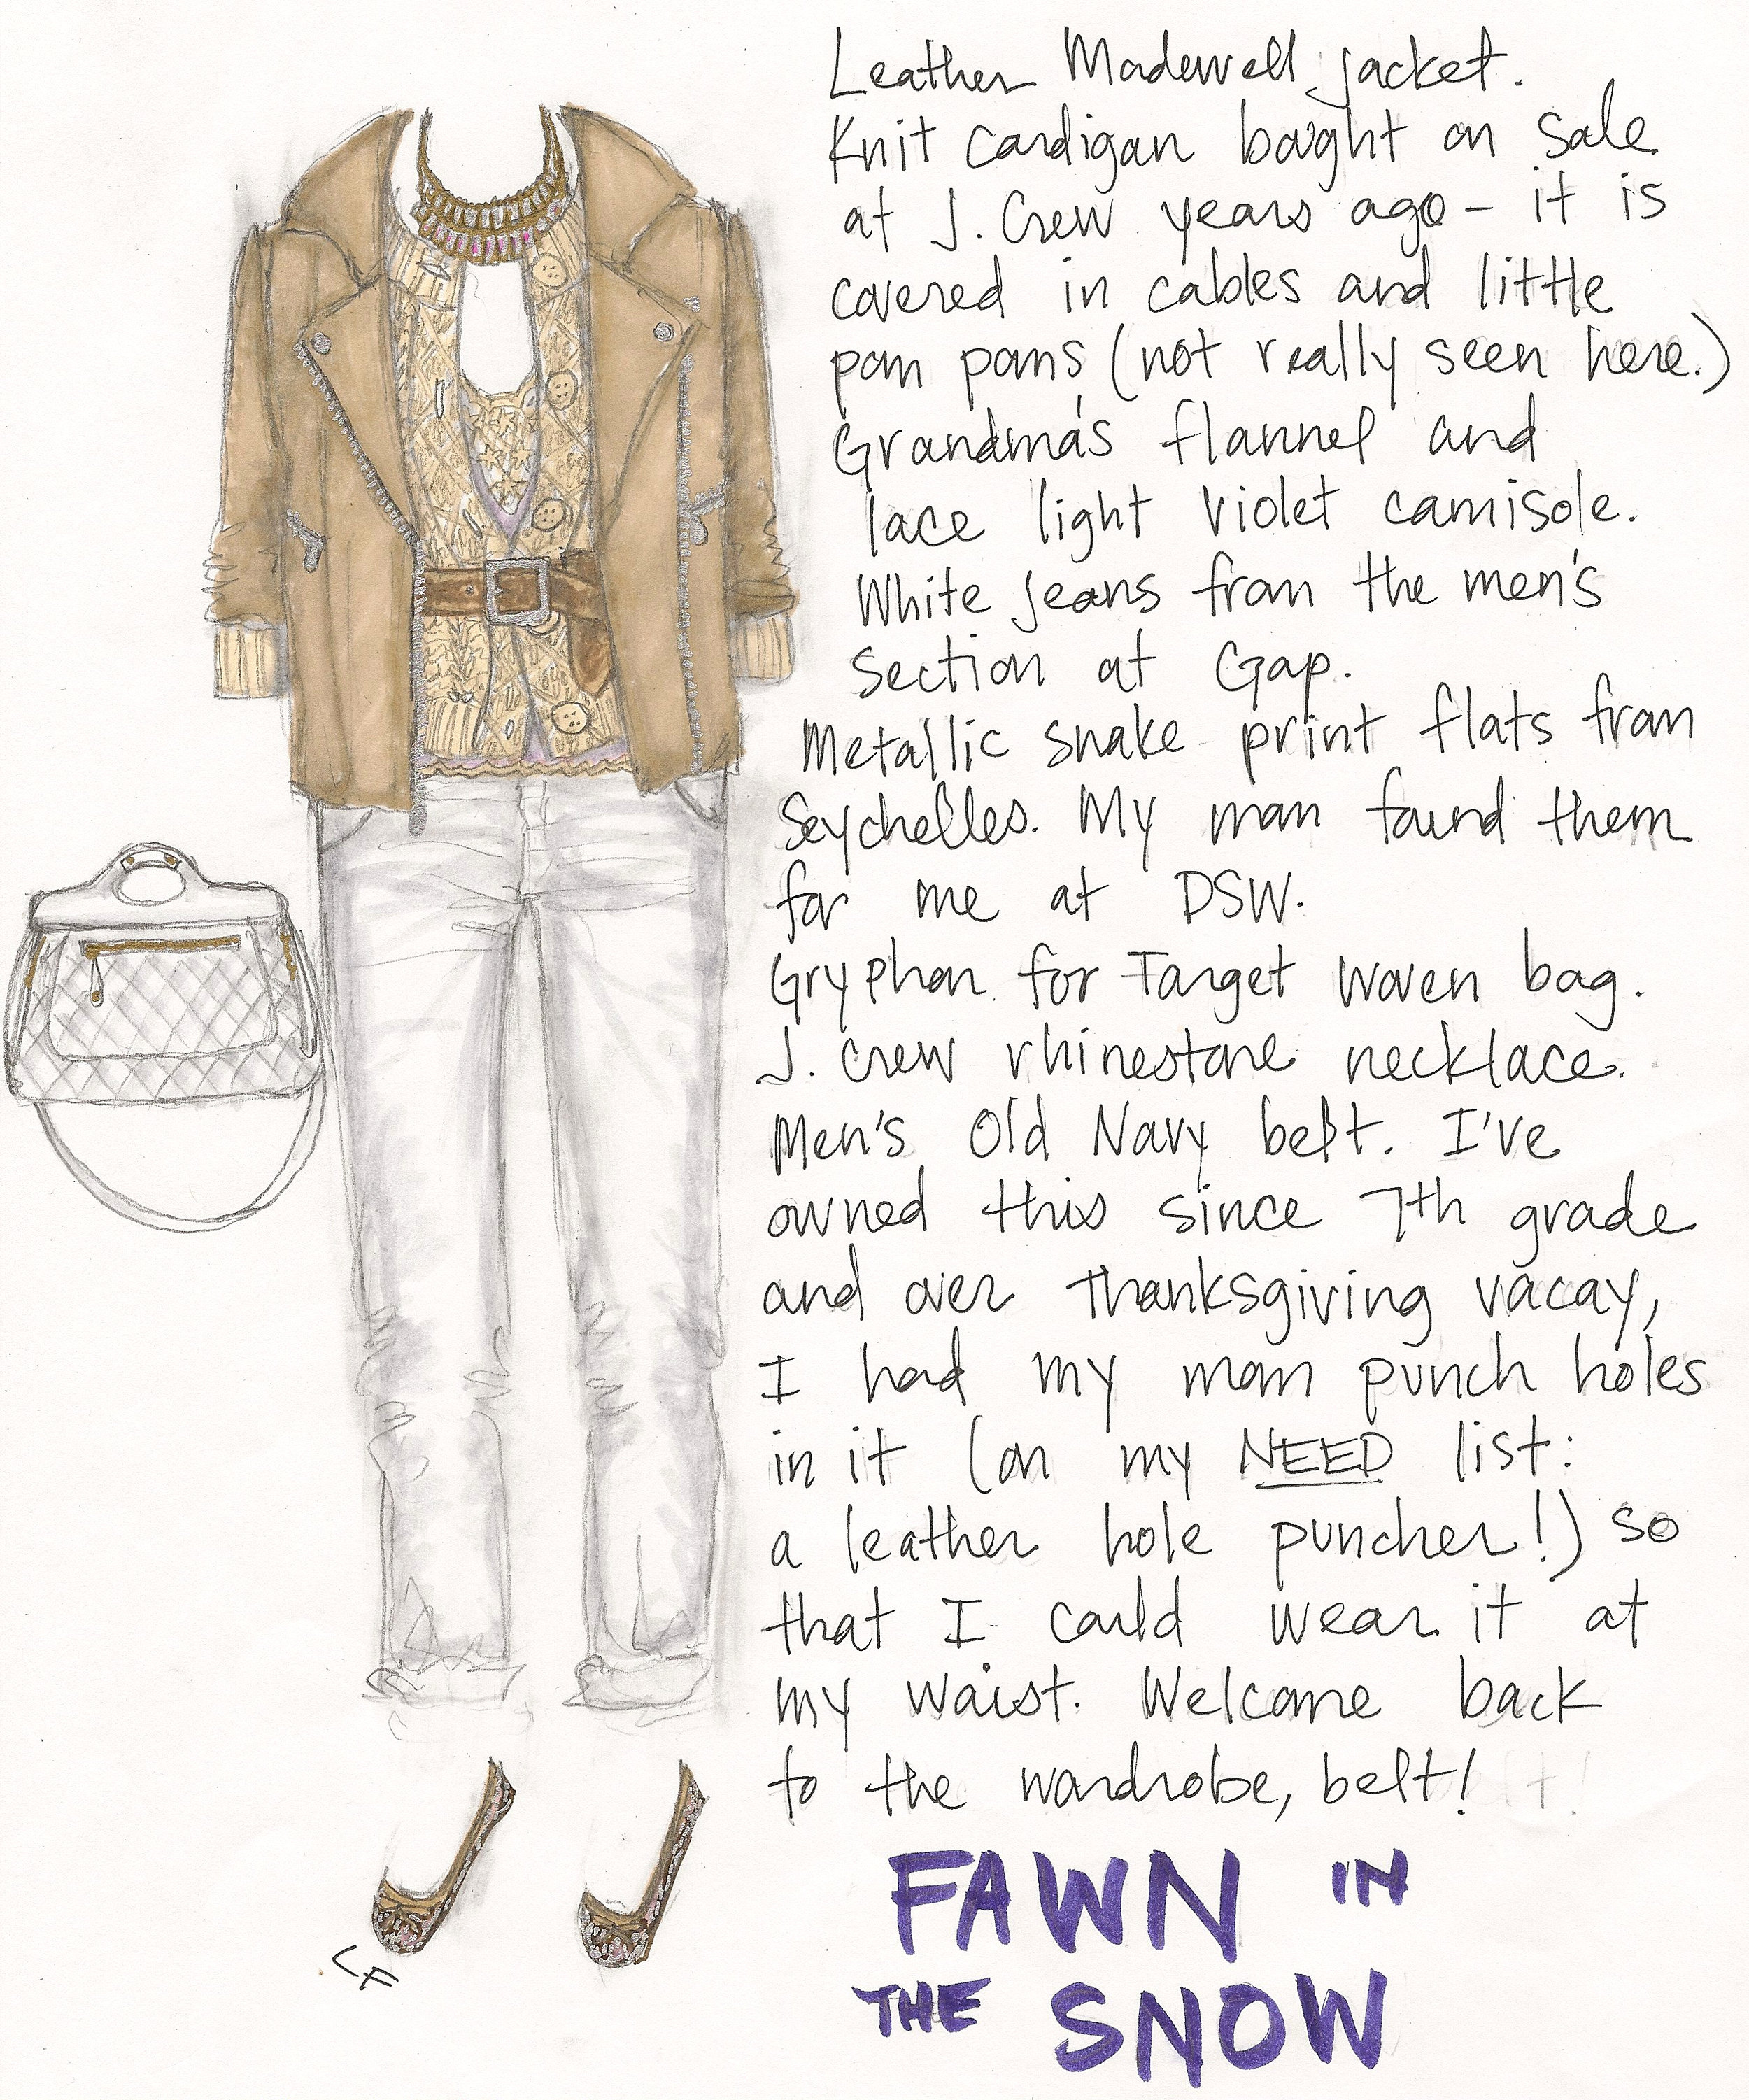 Leather Madewell jacket.
Knit cardigan bought on sale
at J. Crew years ago - it is
covered in cables and little
pom poms (not really seen here.)
Grandma's flannel and
lace light violet camisole.
White jeans from the men's
section at Gap.
Metallic snake print flats from
Seychelles. My man found them
for me at DSW.
Gryphon for Target woven bag.
J. Crew rhinestone necklace.
Men's Old Navy belt. I've
owned this since 7th grade
and over thanksgiving vacay,
I had my man punch holes
in it (on my NEED list:
a leather hole puncher!) so
that I could wear it at
my waist. Welcome back
to the wardrobe, belt!
LF
FAWN IN
THE SNOW